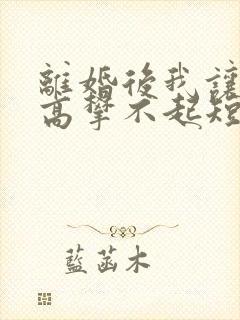 離婚後我讓
高攀不起短
藍菡木